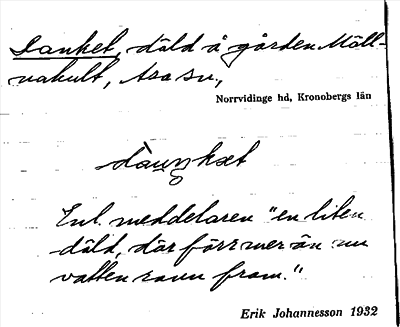 Danket, däld å gården Mäll-
vakult, Asa sn.,
Norrvidinge hd, Kronobergs län
Enl. meddelaren "en liten
däld, där förr mer än nu
vatten rann fram."
Erik Johannesson 1932